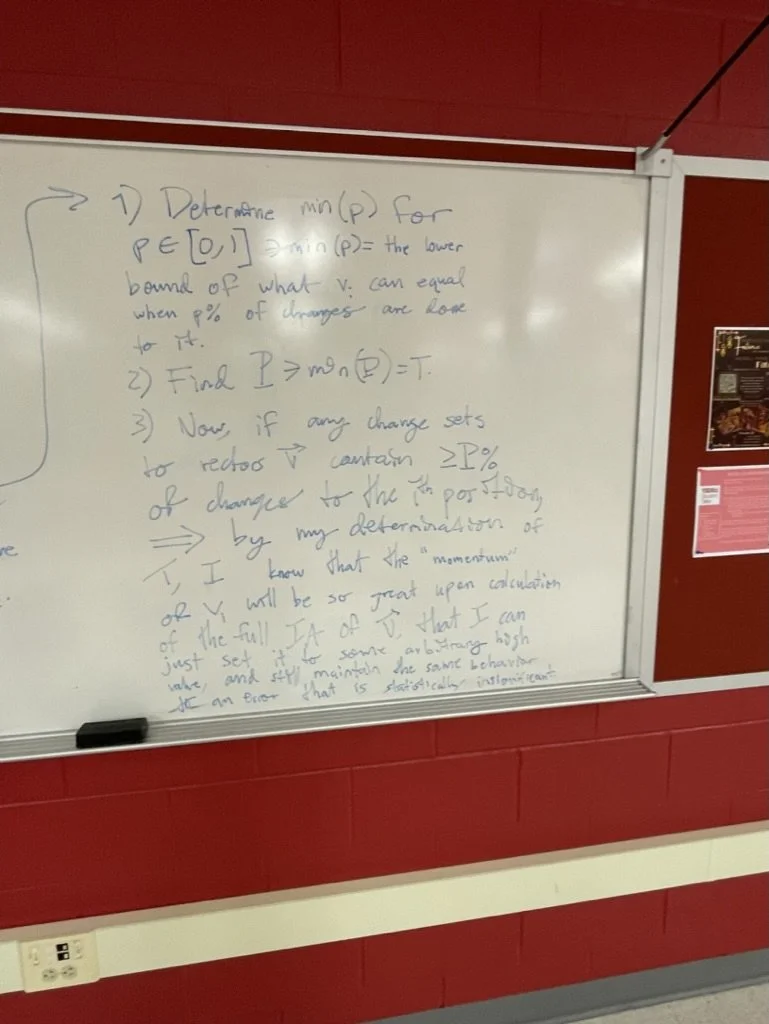 1) Determine min(p) for
p ∈ [0,1] ∋ min(p)= the lower
bound of what vᵢ can equal
when p% of changes are done
to it.
2) Find P ∋ min(P)=T.
3) Now, if any change sets
to vector v⃗ contain ≥P%
of changes to the iᵗʰ position,
⟹ by my determination of
T, I know that the "momentum"
of vᵢ will be so great upon calculation
of the full IA of v⃗, that I can
just set it to some arbitrary high
value, and still maintain the same behavior
an error that is statistically insignificant